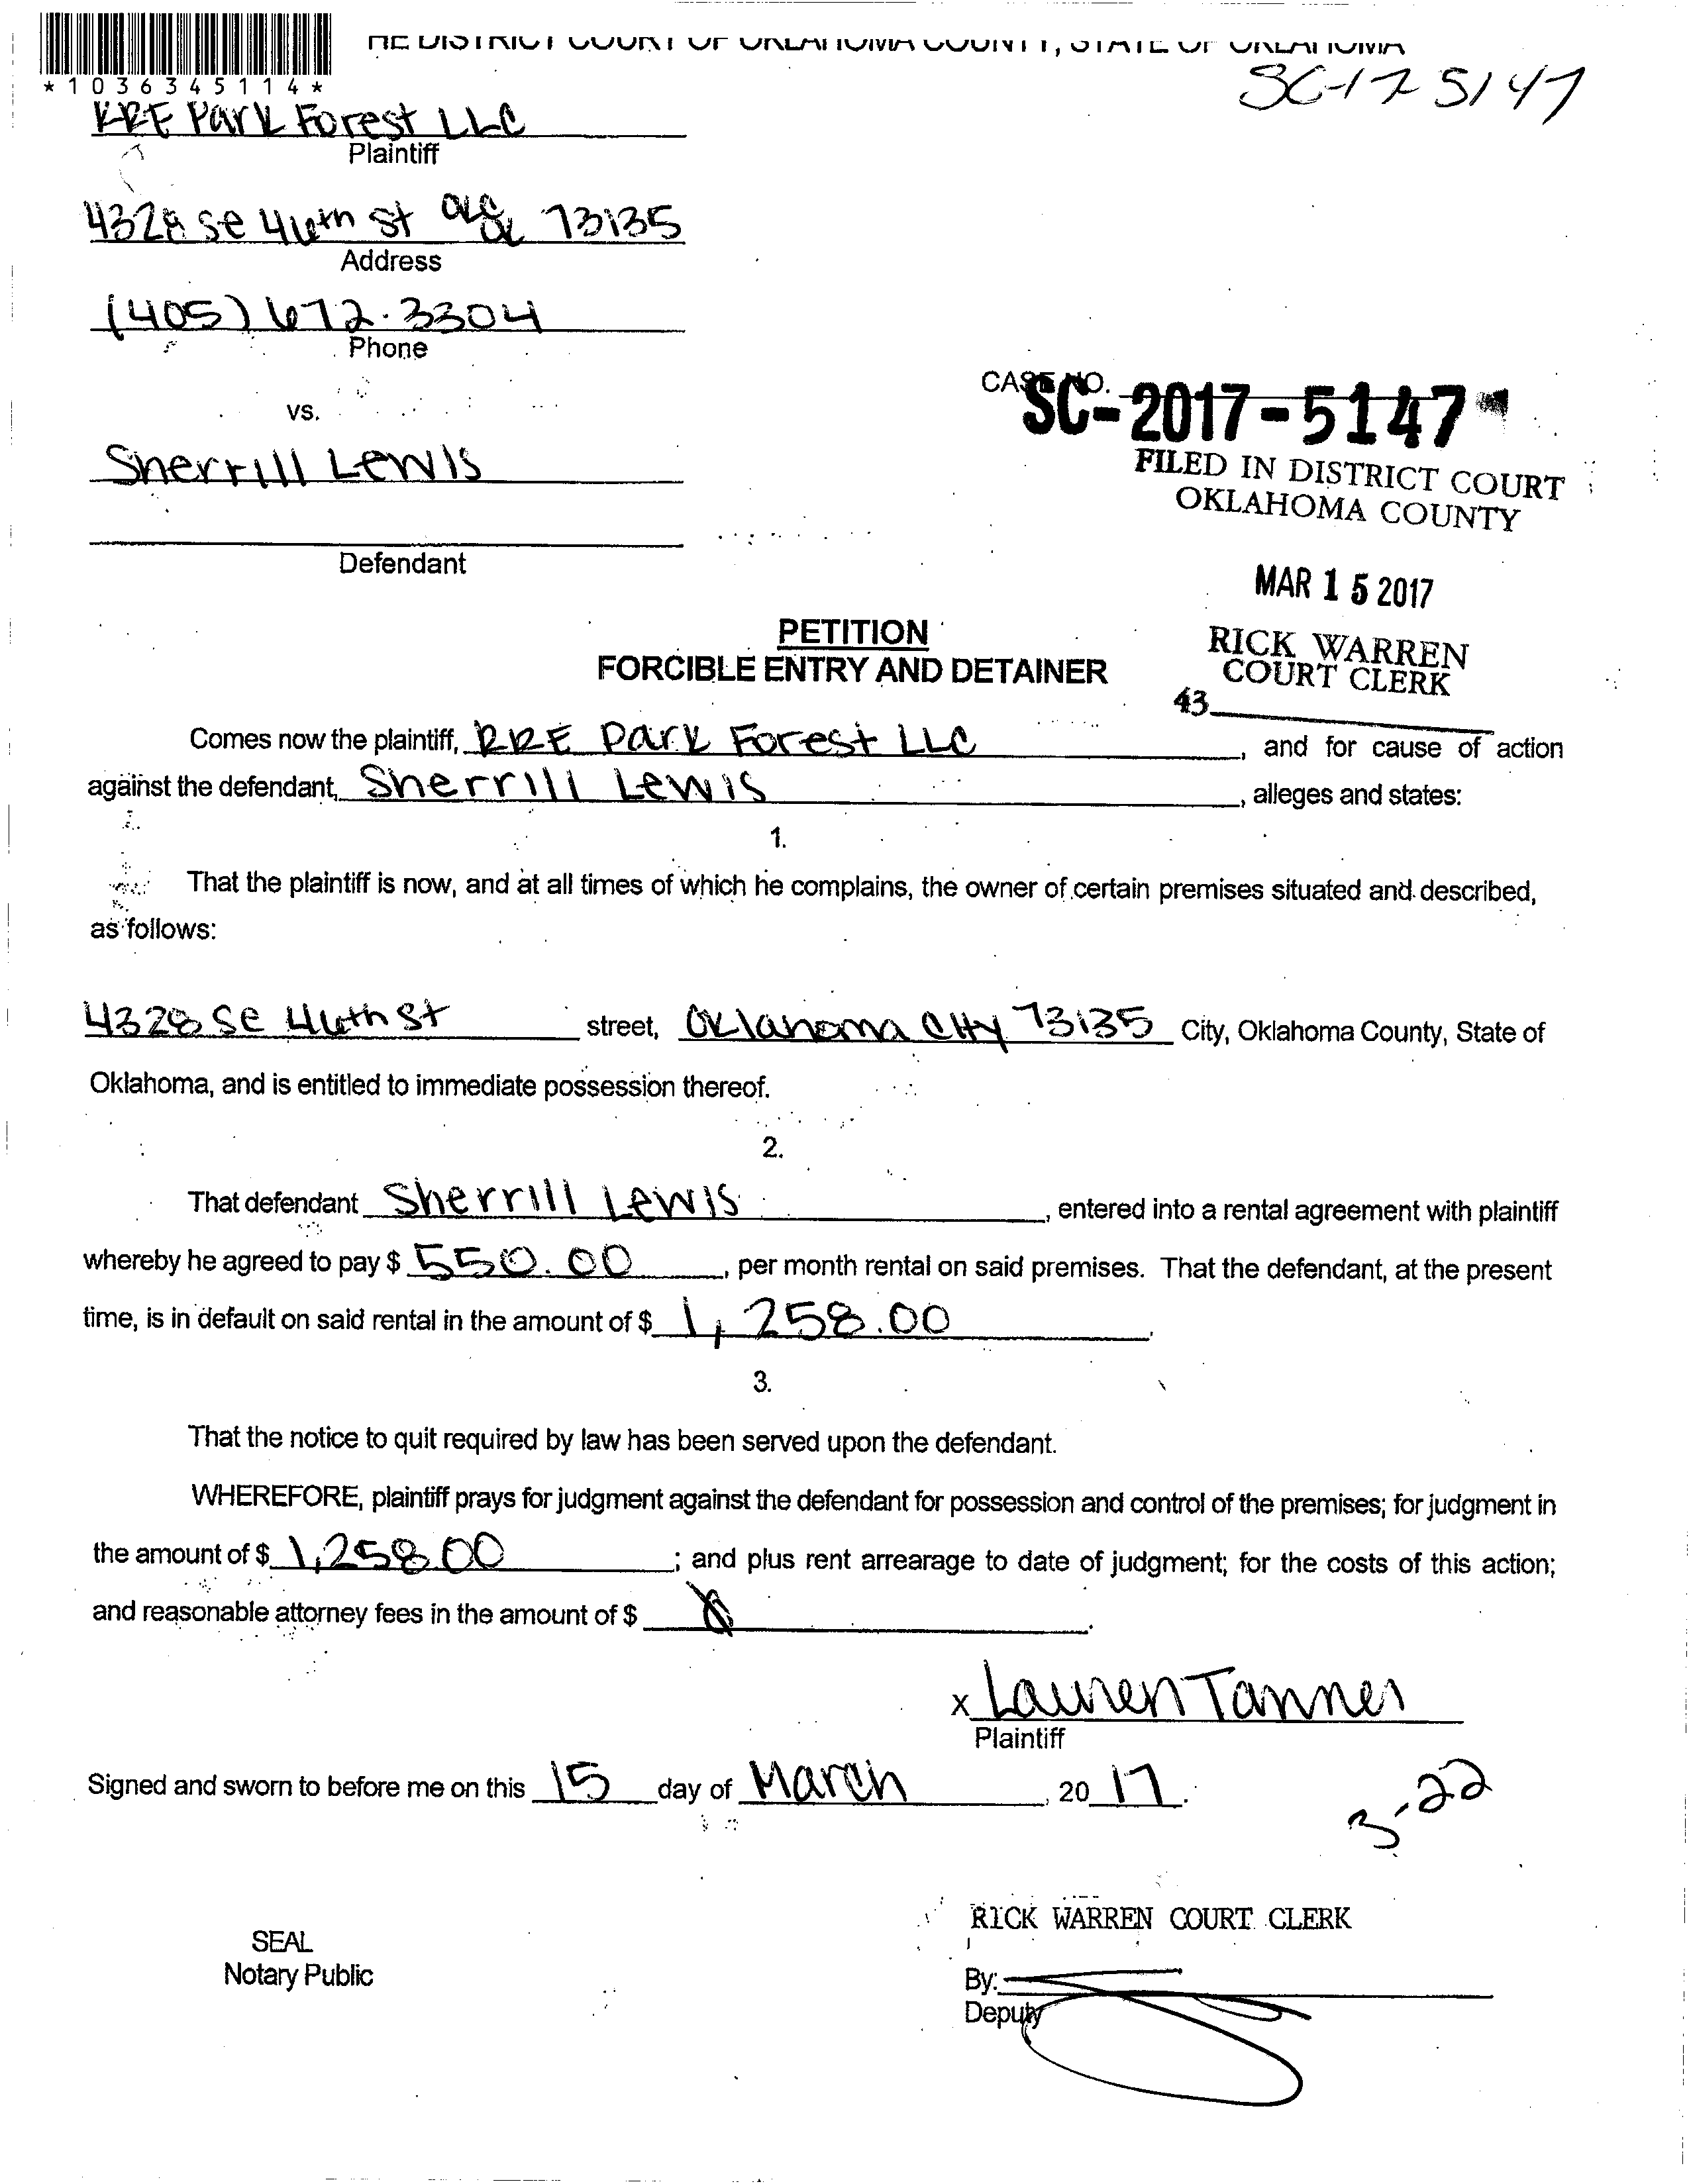 HE DISTRICT COURT OF OKLAHOMA COUNTY, STATE OF OKLAHOMA
*1036345114*
SC-17 5147
RRE Park Forest LLC
Plaintiff
4328 SE 46th St OKC OK 73135
Address
(405) 672.3304
Phone
vs.
CASE NO.
SC-2017-5147
Sherrill Lewis
FILED IN DISTRICT COURT
OKLAHOMA COUNTY
Defendant
MAR 15 2017
PETITION
FORCIBLE ENTRY AND DETAINER
RICK WARREN
COURT CLERK
43
Comes now the plaintiff, RRE Park Forest LLC, and for cause of action
against the defendant, Sherrill Lewis, alleges and states:
1.
That the plaintiff is now, and at all times of which he complains, the owner of certain premises situated and described,
as follows:
4328 SE 46th St street, Oklahoma City 73135 City, Oklahoma County, State of
Oklahoma, and is entitled to immediate possession thereof.
2.
That defendant Sherrill Lewis, entered into a rental agreement with plaintiff
whereby he agreed to pay $ 550.00, per month rental on said premises. That the defendant, at the present
time, is in default on said rental in the amount of $ 1,258.00.
3.
That the notice to quit required by law has been served upon the defendant.
WHEREFORE, plaintiff prays for judgment against the defendant for possession and control of the premises; for judgment in
the amount of $ 1,258.00; and plus rent arrearage to date of judgment; for the costs of this action;
and reasonable attorney fees in the amount of $ .
x Lauren Tanner
Plaintiff
Signed and sworn to before me on this 15 day of March, 20 17.
3-22
RICK WARREN COURT CLERK
SEAL
Notary Public
By:
Deputy